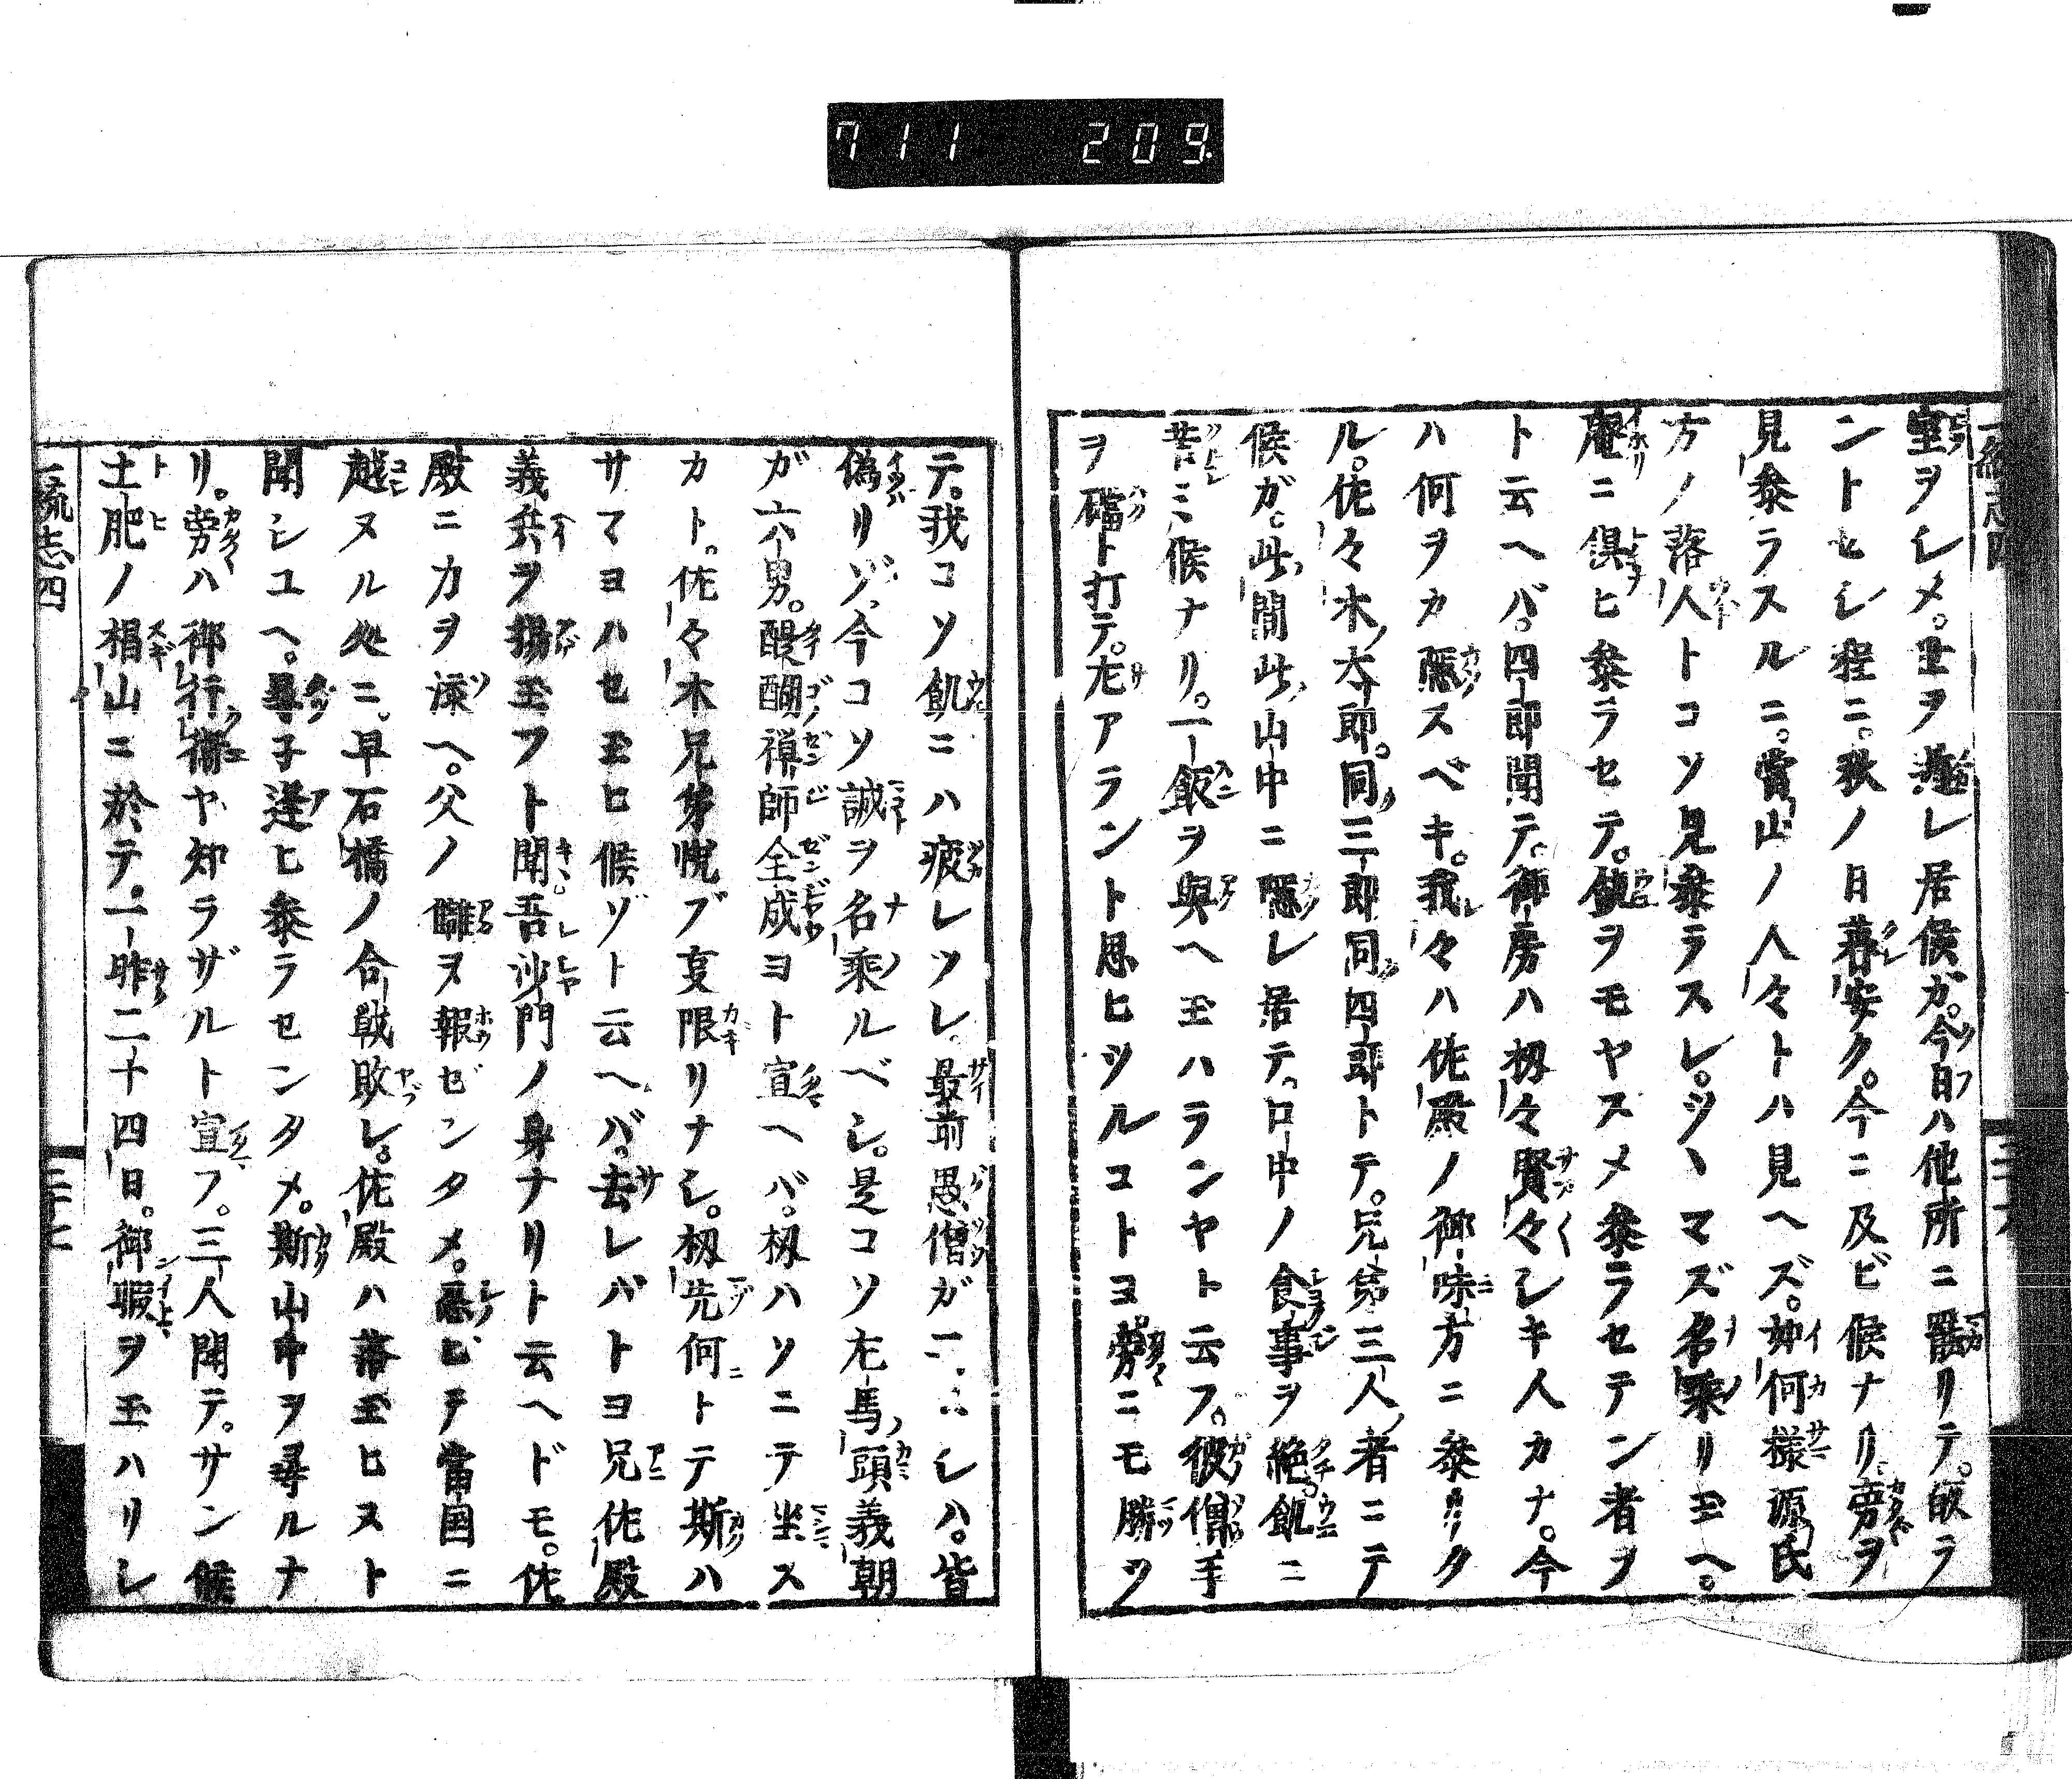 711 209
室ヲシメ。世ヲ遁レ居候ガ。今日ハ他所ニ罷リテ。皈ラ
ントセシ程ニ。秋ノ日暮安ク。今ニ及ビ候ナリ。旁ヲ
見參ラスルニ。當山ノ人々トハ見ヘズ。如何樣源氏
方ノ落人トコソ見參ラスレ。ツヽマズ名乘リ玉ヘ。
庵ニ倶ヒ參ラセテ。飢ヲモヤスメ參ラセテン者ヲ
ト云ヘバ。四郎聞テ。御房ハ扨々賢々シキ人カナ。今
ハ何ヲカ隱スベキ。我々ハ佐殿ノ御味方ニ參リタ
ル。佐々木太郎。同三郎同四郎トテ。兄弟三人ノ者ニテ
候ガ。此間此山中ニ隱レ居テ。口中ノ食事ヲ絶飢ニ
苦ミ候ナリ。一飯ヲ與ヘ玉ハランヤト云フ。彼僧手
ヲ礑ト打テ。左アラント思ヒツルコトヨ旁ニモ勝ツ
テ。我コソ飢ニハ疲レツレ。最前愚僧ガ云シハ。皆
偽リゾ。今コソ誠ヲ名乘ルベシ。是コソ左馬頭義朝
ガ六男。醍醐禅師全成ヨト宣ヘバ。扨ハソニテ坐ス
カト。佐々木兄弟悅ブ事限リナシ。扨先何トテ斯ハ
サマヨハセ玉ヒ候ゾト云ヘバ。去レバトヨ兄佐殿
義兵ヲ揚玉フト聞吾沙門ノ身ナリト云ヘドモ。佐
殿ニ力ヲ添ヘ。父ノ讎ヲ報ゼンタメ。忍ビテ當国ニ
越ヌル処ニ。早石橋ノ合戰敗レ。佐殿ハ落玉ヒヌト
聞シユヘ。尋子逢ヒ參ラセンタメ。斯山中ヲ尋ルナ
リ。旁ハ御行衞ヤ知ラザルト宣フ。三人聞テ。サン候
土肥ノ椙山ニ於テ。一昨二十四日。御暇ヲ玉ハリシ
二十七